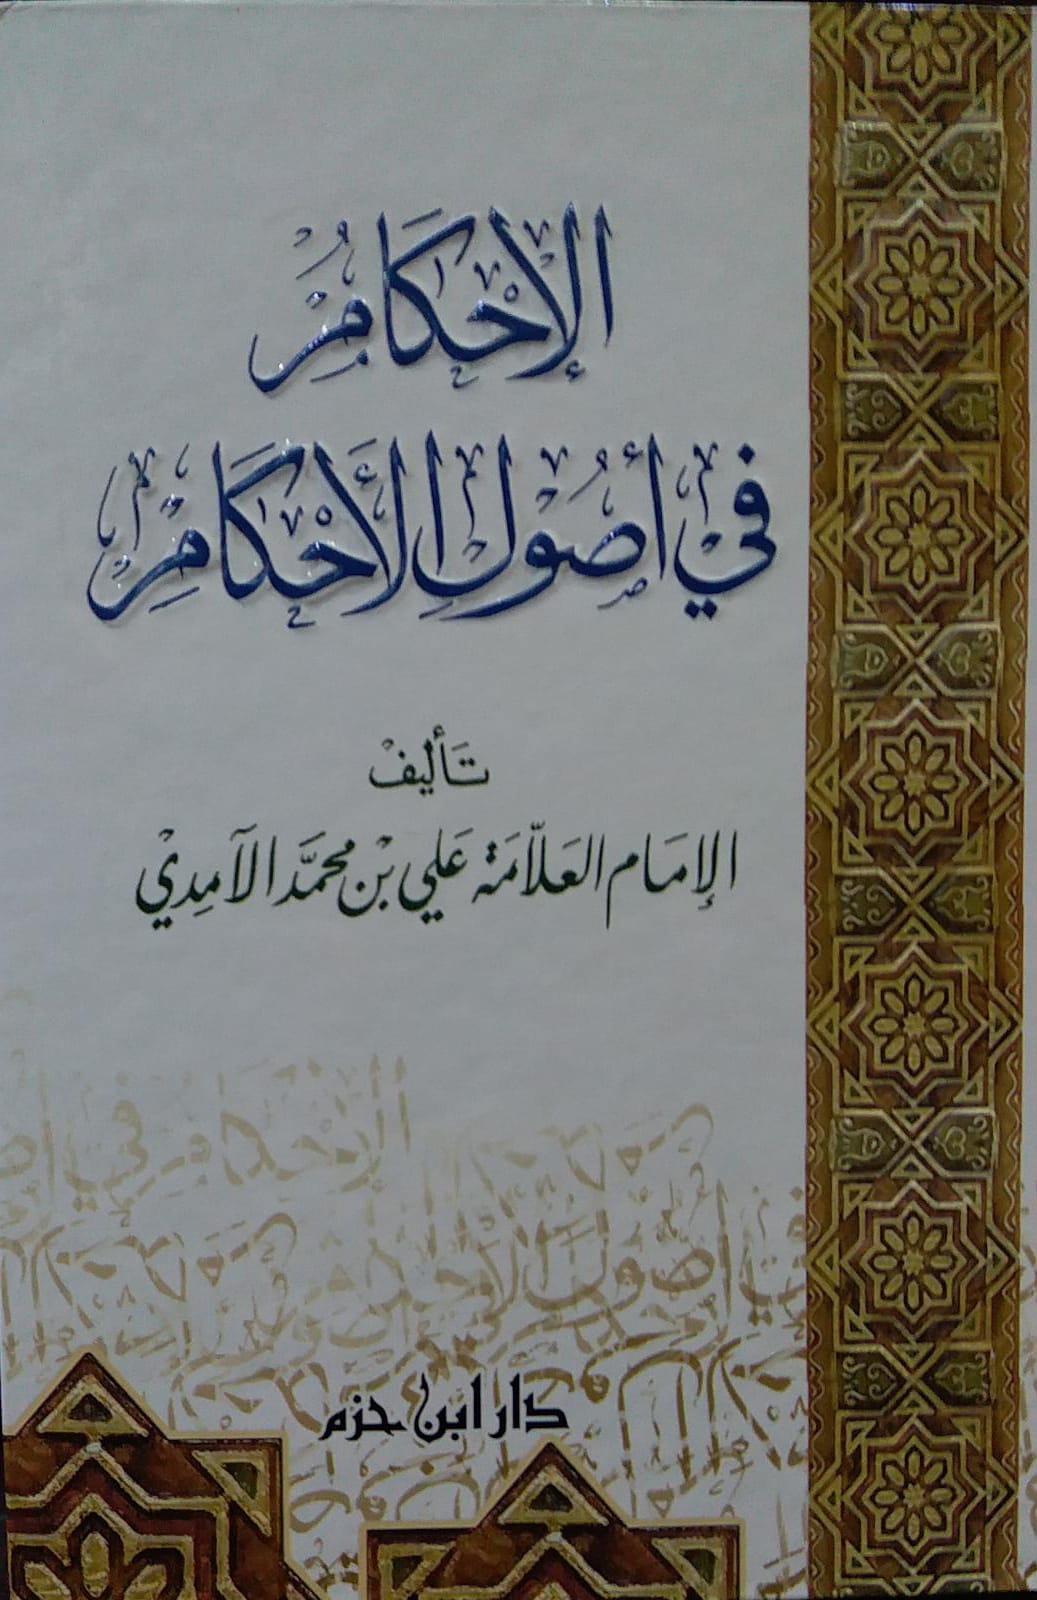 الإِحْكَامُ
في أُصُولِ الأَحْكَامِ
تَأليفْ
الإمَام العَلاّمَة عَلي بْن محمَّد الآمِدِيْ
دار ابن حزم